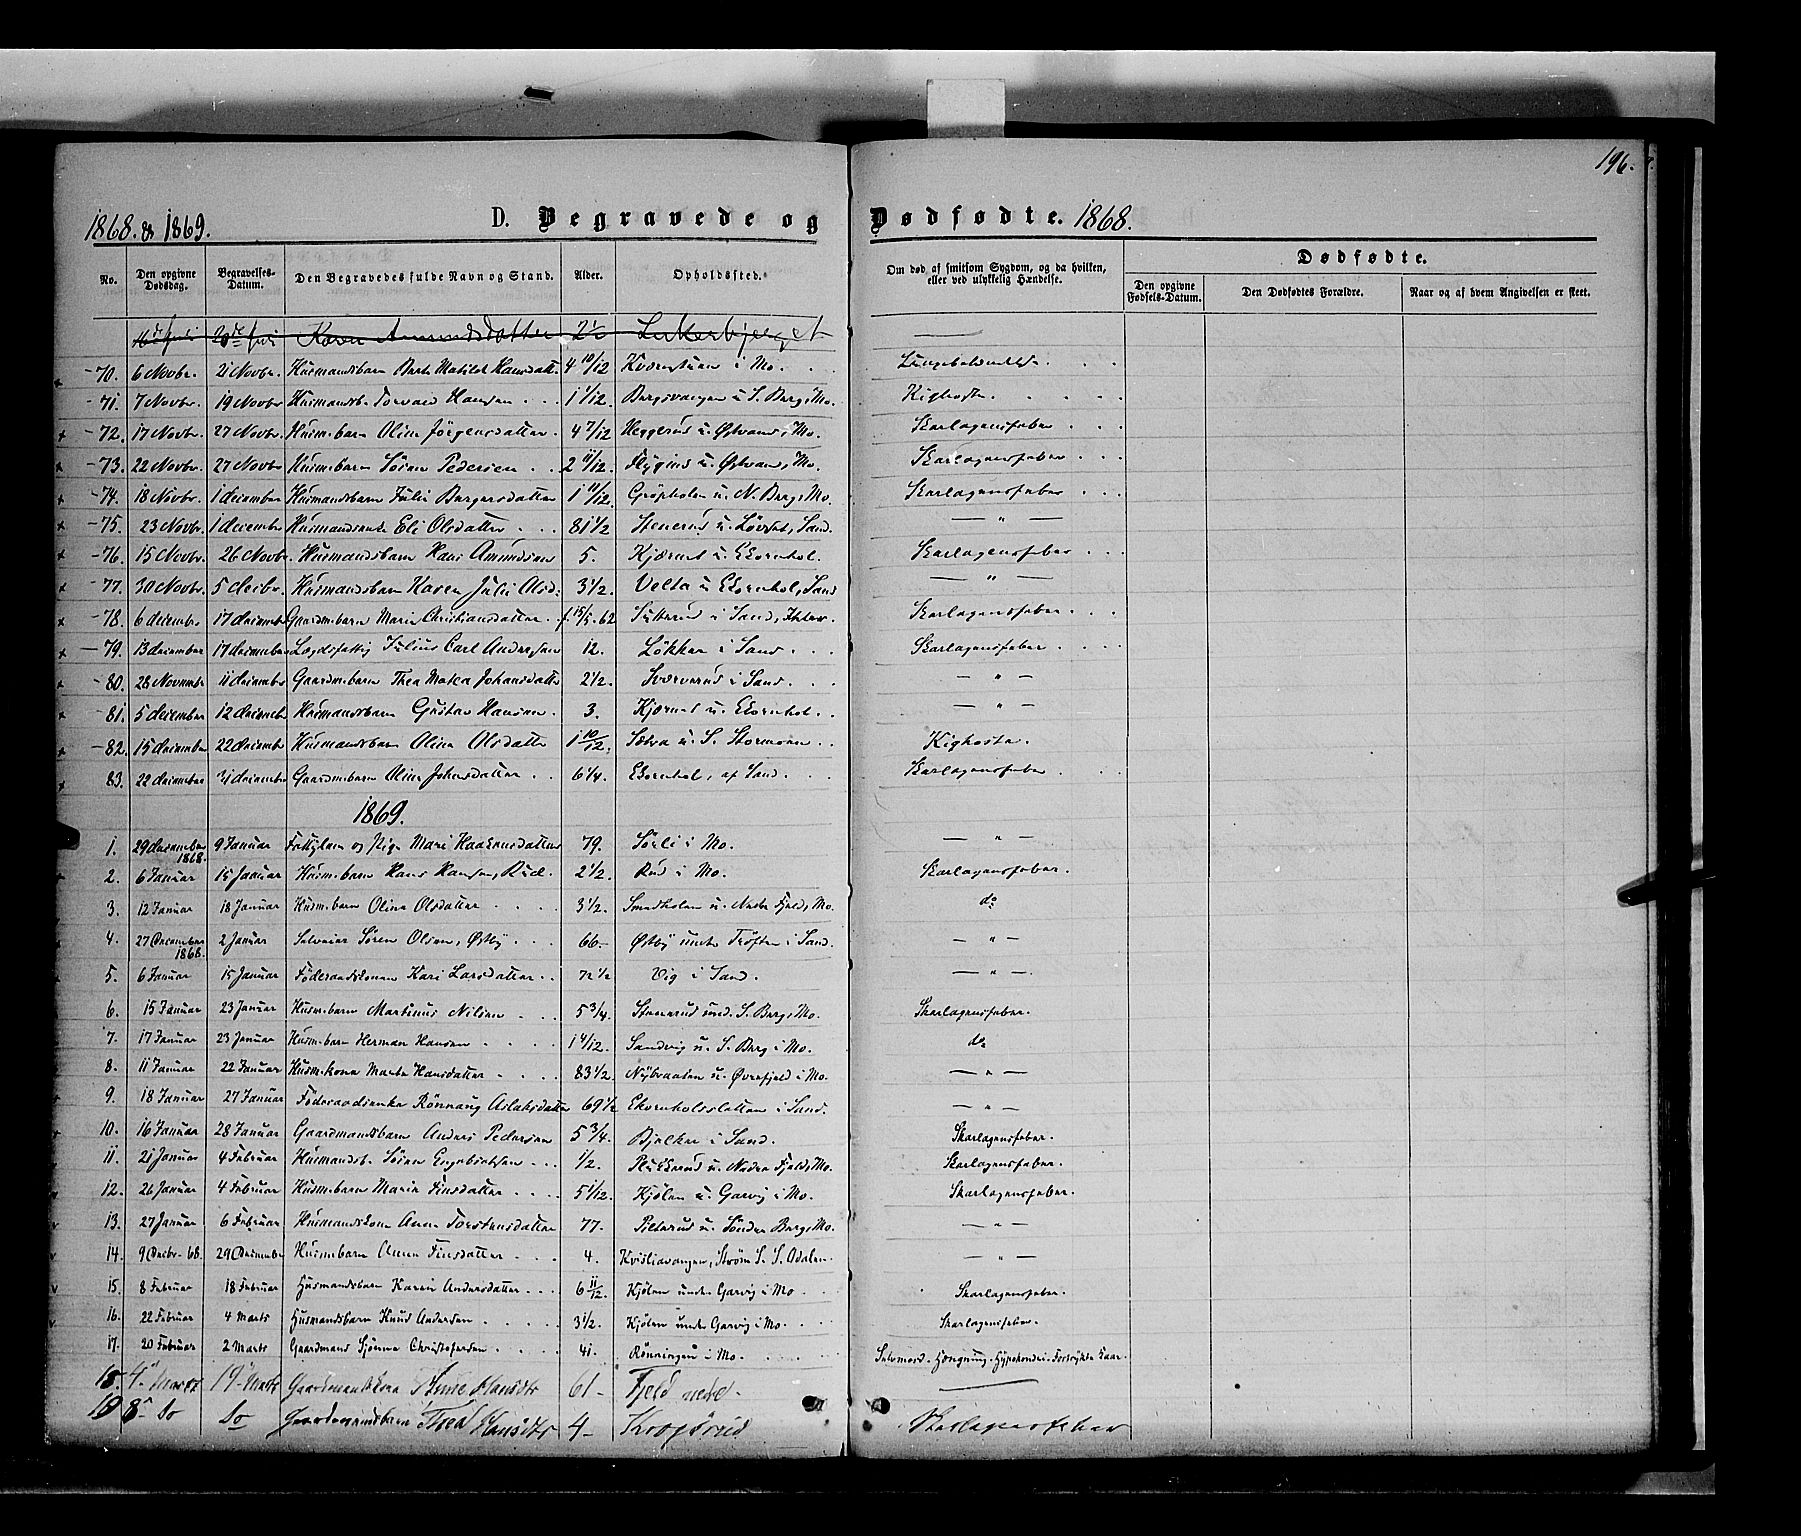 196.
1868. & 1869. D. Begravede og Dødfødte. 1868.
No. Den opgivne Dødsdag. Begravelses-Datum. Den Begravedes fulde Navn og Stand. Alder. Opholdssted. Om død af smitsom Sygdom, og da hvilken, eller ved ulykkelig Hændelse. Dødfødte.
Den opgivne Fødsels-Datum. Den Dødfødtes Forældre. Naar og af hvem Angivelsen er skeet.
Karen Amundsdatter 2½
70. 6 Novbr. 21 Novbr. Husmandsbarn Matilde Hansdatt 4 10/12 i Mo.
71. 7 Novbr. 19 Novbr Husmandsb. Torvald Hansen 1 1/12. Bergsvangen u. S. Berg, Mo. Kighoste.
72. 17 Novbr. 27 Novbr. Husm.barn Oline Jörgensdatter 4 7/12 Heggerud u. Østvand, Mo. Skarlagensfeber
73. 22 Novbr. 27 Novbr Husm.barn Sören Pedersen 2 11/12. u. Østvand, Mo. Skarlagensfeber
74. 18 Novbr. 1 december Husmandsbarn Julie Bergersdatter 1 11/12. u. N. Berg, Mo. Skarlagensfeber
75. 23 Novbr. 1 december Eli Olsdatter 81 1/2 Stenerud u. Sand. — " —
76. 15 Novbr. 26 Novbr. Husmandsbarn Hans Amundsen 5. u. Ekornhol. Skarlagensfeber
77. 30 Novbr. 5 decbr. Husmandsbarn Karen Julie Olsd: 3 1/2. Velta u Ekornhol, Sand — " —
78. 6 december 17 december Gaardm.barn Marie Christiansdatter f. 15/5.62 i Sand, Skarlagensfeber
79. 13 december 17 december Julius Carl Andersen 12. Lökker i Sand Skarlagensfeber
80. 28 November 11 december Gaardm.barn Thea Matea Johansdatter 2 1/2. i Sand — " —
81. 5 december 12 december Husmandsbarn Gustav Hansen 3. u. Ekornhol. — " —
82. 15 december 22 december Husmandsbarn Oline Olsdatter 1 10/12. u. S. Stormoen Kighoste.
83. 22 december 31 december Gaardm.barn Oline Johnsdatter 6 1/4. Ekornhol, af Sand. Skarlagensfeber
1869.
1. 29 december 1868. 9 Januar og Pige Mari Haakensdatter 79. Sörli i Mo. — " —
2. 6 Januar 15 Januar Husm.barn Hans Hansen, Rud. 2 1/2. Rud i Mo. Skarlagensfeber.
3. 12 Januar 18 Januar Husm.barn Oline Olsdatter 3 1/2. Smedholen u. Nedre Fjeld, Mo. do
4. 27 December 1868. 2 Januar Selveier Sören Olsen, Østby 66- Østby under Trøften i Sand. — " —
5. 6 Januar 15 Januar Föderaadskonen Kari Larsdatter 72 1/2 Vig i Sand. — " —
6. 15 Januar 23 Januar Husm.barn Martinus Nilsen 5 3/4. Stenerud und. S. Berg, Mo. Skarlagensfeber.
7. 17 Januar 23 Januar Husm.barn Herman Hansen 1 4/12. Sandvig u. S. Berg i Mo. do.
8. 11 Januar 22 Januar Husm.kone Marte Hansdatter 83 1/2. Nybraaten u. Øvrefjeld i Mo. — " —
9. 18 Januar 27 Januar Föderaadsenke Rönnaug Aslaksdatter 69 1/2 Ekornholsslatten i Sand. — " —
10. 16 Januar 28 Januar Gaardmandsbarn Anders Pedersen 5 3/4. Bjelker i Sand. Skarlagensfeber.
11. 21 Januar 4 Februar Husmandsb. Sören Engebretsen 1/2. u. Nedre Fjeld, Mo. Skarlagensfeber.
12. 26 Januar 4 Februar Husm.barn Marie Finsdatter 5 1/12. Kjölen u. Garvig i Mo. Skarlagensfeber.
13. 27 Januar 6 Februar Husmandskone Anne Torstensdatter 77. u. Söndre Berg, Mo. — " —
14. 9 Decbr. 68. 29 December Husm.barn Anne Finsdatter 4. Kristiavangen, Ström S. S. Odalen — " —
15. 8 Februar 18 Februar Husmandsbarn Karen Andersdatter 6 11/12. Kjölen under Garvig i Mo Skarlagensfeber.
16. 22 Februar 4 Marts Husmandsbarn Knud Andersen 3 1/2. Kjölen under Garvig i Mo. Skarlagensfeber.
17. 20 Februar 2 Marts Gaardmand Christofersen 41. Rönningen i Mo. Selvmord. Hængning.
18. 4 Marts 19 Marts Gaardmandskone Hansdtr 61- Fjeld nedre.
19 8 Do Do Gaardmandsbarn Thea Hansdtr 4- Skarlagensfeber